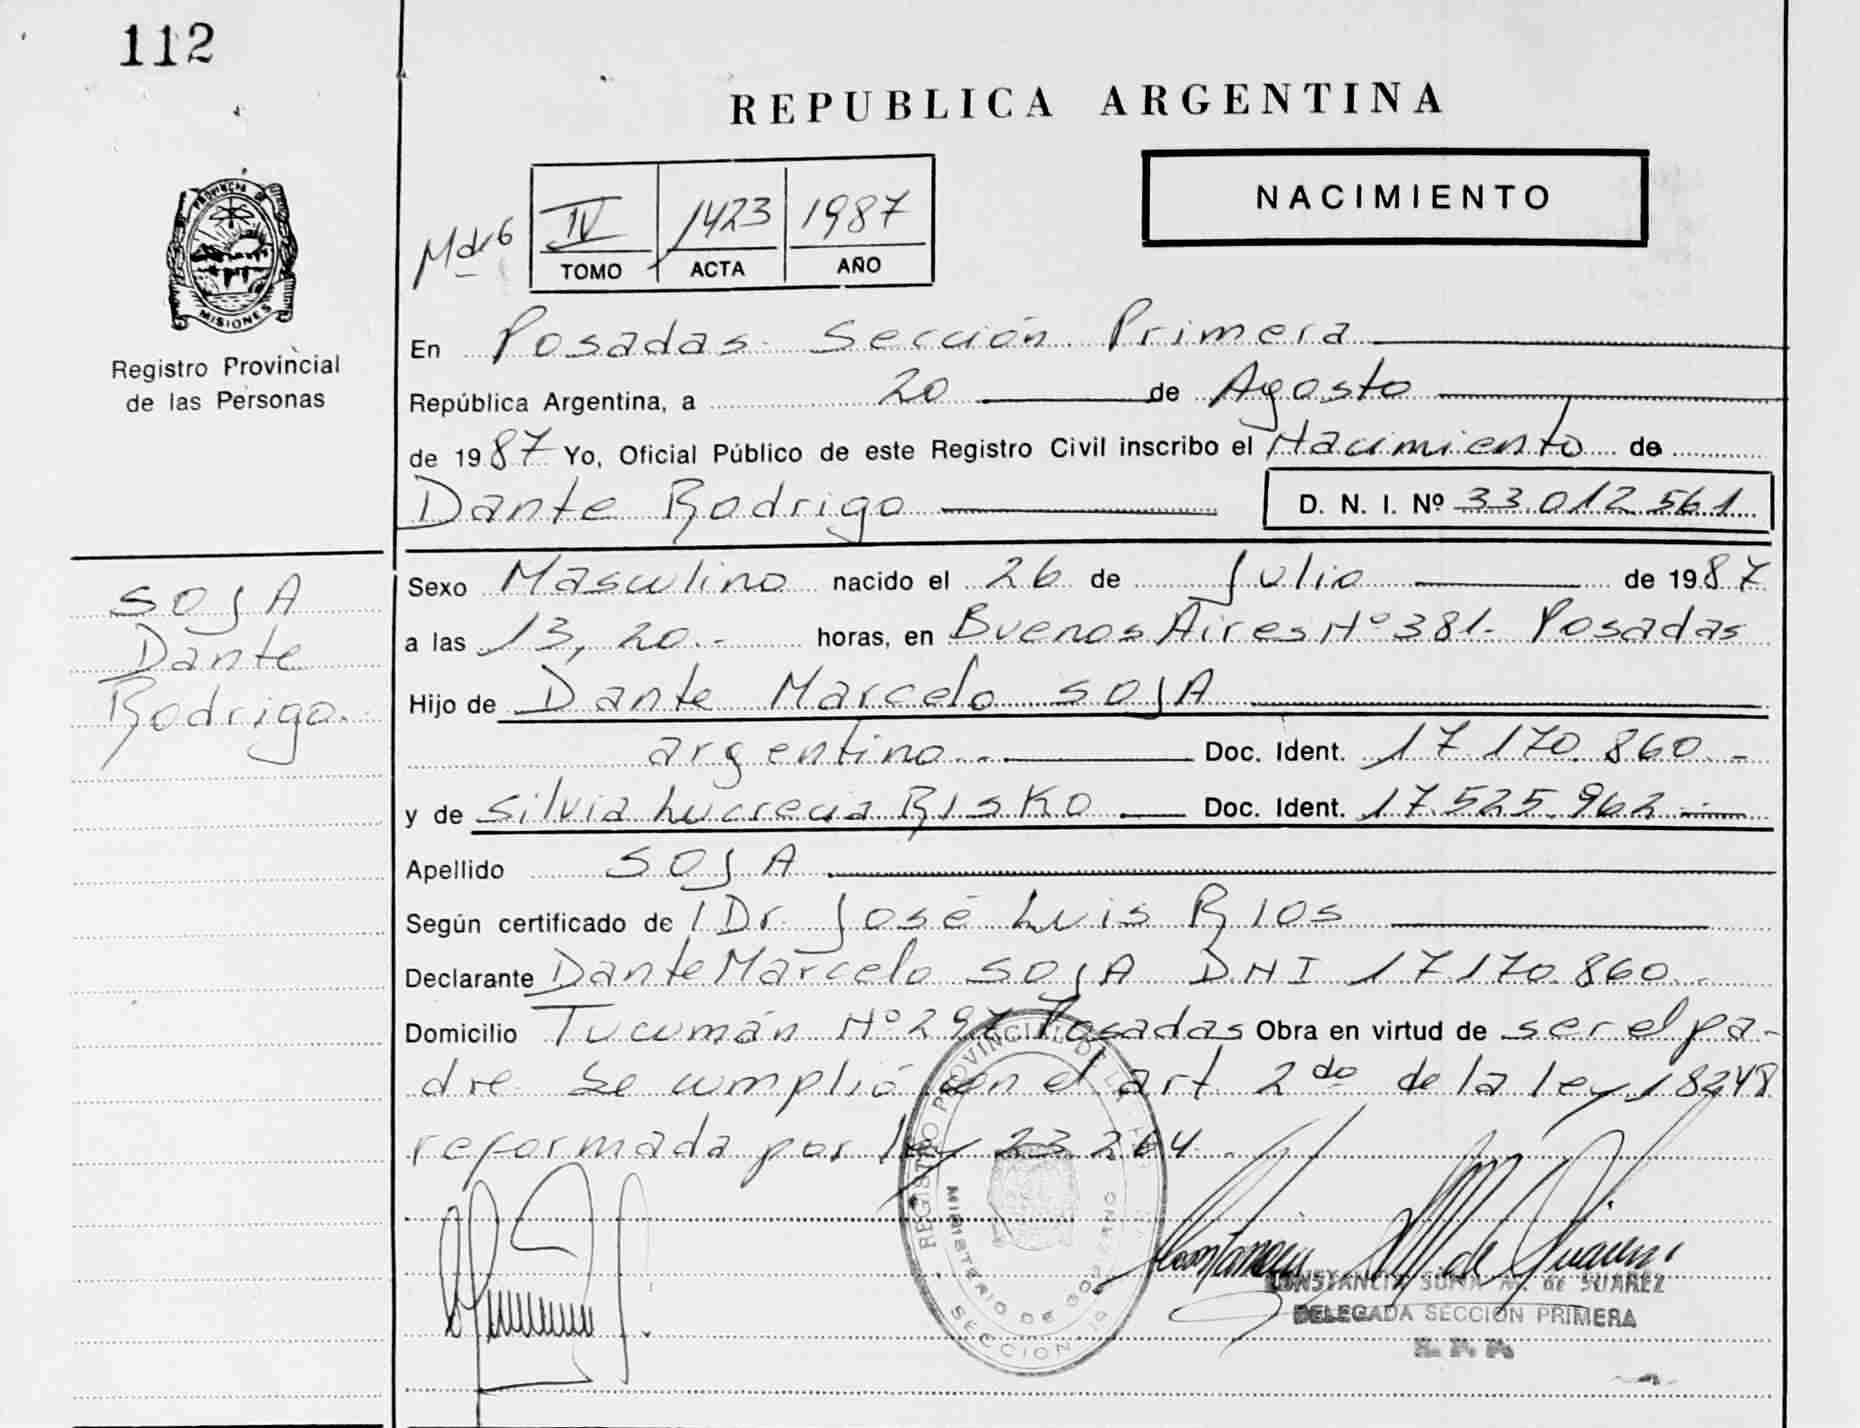 112
REPUBLICA ARGENTINA
NACIMIENTO
IV 1423 1987
TOMO ACTA AÑO
PROVINCIA DE
MISIONES
Registro Provincial
de las Personas
En Posadas Sección Primera
República Argentina, a 20 de Agosto
de 1987 Yo, Oficial Público de este Registro Civil inscribo el Nacimiento de
Dante Rodrigo D. N. I. Nº 33.012.561
SOSA
Dante
Rodrigo.
Sexo Masculino nacido el 26 de Julio de 1987
a las 13,20.- horas, en Buenos Aires Nº 381. Posadas
Hijo de Dante Marcelo SOSA
argentino.- Doc. Ident. 17.170.860.-
y de Silvia Lucrecia RISKO Doc. Ident. 17.525.962.-
Apellido SOSA
Según certificado de Dr. José Luis RIOS
Declarante Dante Marcelo SOSA D.N.I 17.170.860.-
Domicilio Tucumán Nº 297 Posadas Obra en virtud de ser el pa-
dre Se cumplió con el art 2do de la ley 18248
reformada por ley 23.264.
REGISTRO PROVINCIAL DE LAS
MINISTERIO DE GOBIERNO
SECCION 1a
CONSTANCIA de SUAREZ
DELEGADA SECCION PRIMERA
R. P. P.